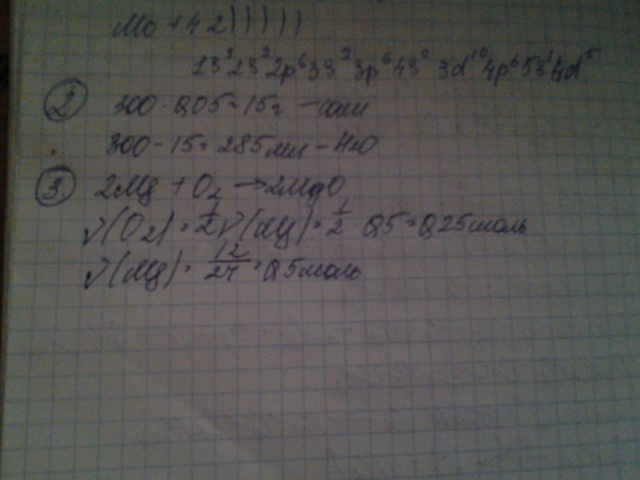 Mo +42)))))
1s²2s²2p⁶3s²3p⁶4s² 3d¹⁰4p⁶5s¹4d⁵
② 300 · 0,05 = 15г - соли
300 - 15 = 285мл - H₂O
③ 2Mg + O₂ → 2MgO
ν(O₂) = 1/2 ν(Mg) = 1/2 · 0,5 = 0,25моль
ν(Mg) = 12/24 = 0,5моль